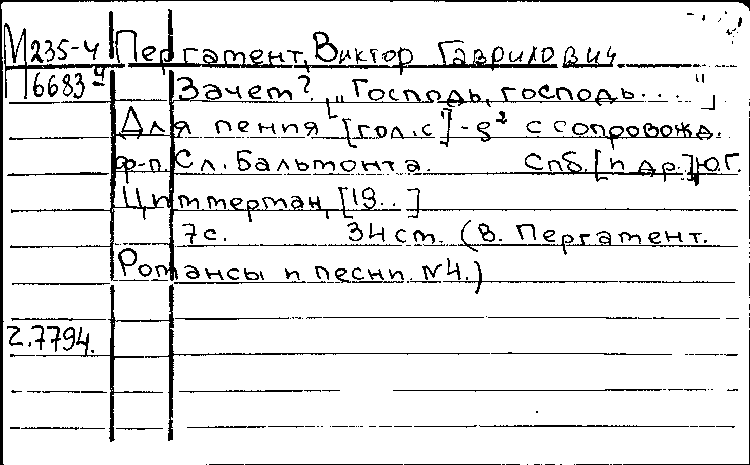 М 235-4 Пергамент, Виктор Гаврилович
П 6683 Зачем? [„Господь, господь..."]
Для пения [гол. c¹]-g² с сопровожд.
ф-п. Сл. Бальмонта. Спб. [и др.] Ю.Г.
Циммерман, [19..]
7 с. 34 см. (В. Пергамент.
Романсы и песни. №4.)
2.7794.